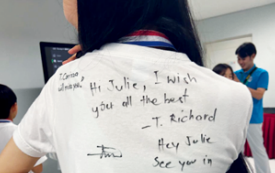 Hi Julie, I wish
you all the best
- T. Richard
Hey Julie
See you in